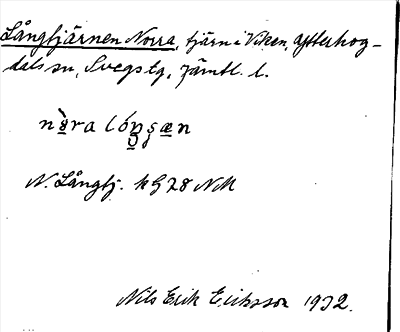 Långtjärnen Norra, tjärn i Viken, Ytterhog-
dals sn, Svegs tg, Jämtl. l.
nòra lóŋşæn
N. Långtj. kG 28 NM
Nils Erik Eriksson 1932.